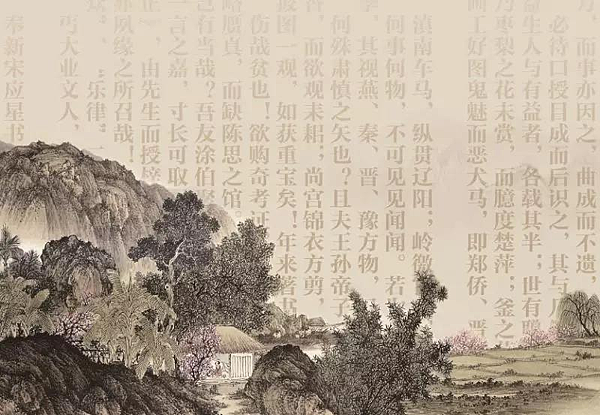 万，而事亦因之，曲成而不遗，
必待口授目成而后识之，其与
益生人与有益者，各载其半；世有
乃枣梨之花未赏，而臆度楚萍；釜之
画工好图鬼魅而恶犬马，即郑侨、晋
滇南车马，纵贯辽阳；岭徼
何事何物，不可见见闻闻。若
其视燕、秦、晋、豫方物，
何殊肃慎之矢也？且夫王孙帝子
而欲观耒耜；尚宫锦衣方剪，
披图一观，如获重宝矣！年来著书
伤哉贫也！欲购奇考证
略赝真，而缺陈思之馆
己有当哉？吾友涂伯
一言之嘉，寸长可取
正”，由先生而授
亦夙缘之所召哉！
“乐律”
丐大业文人，
奉新宋应星书